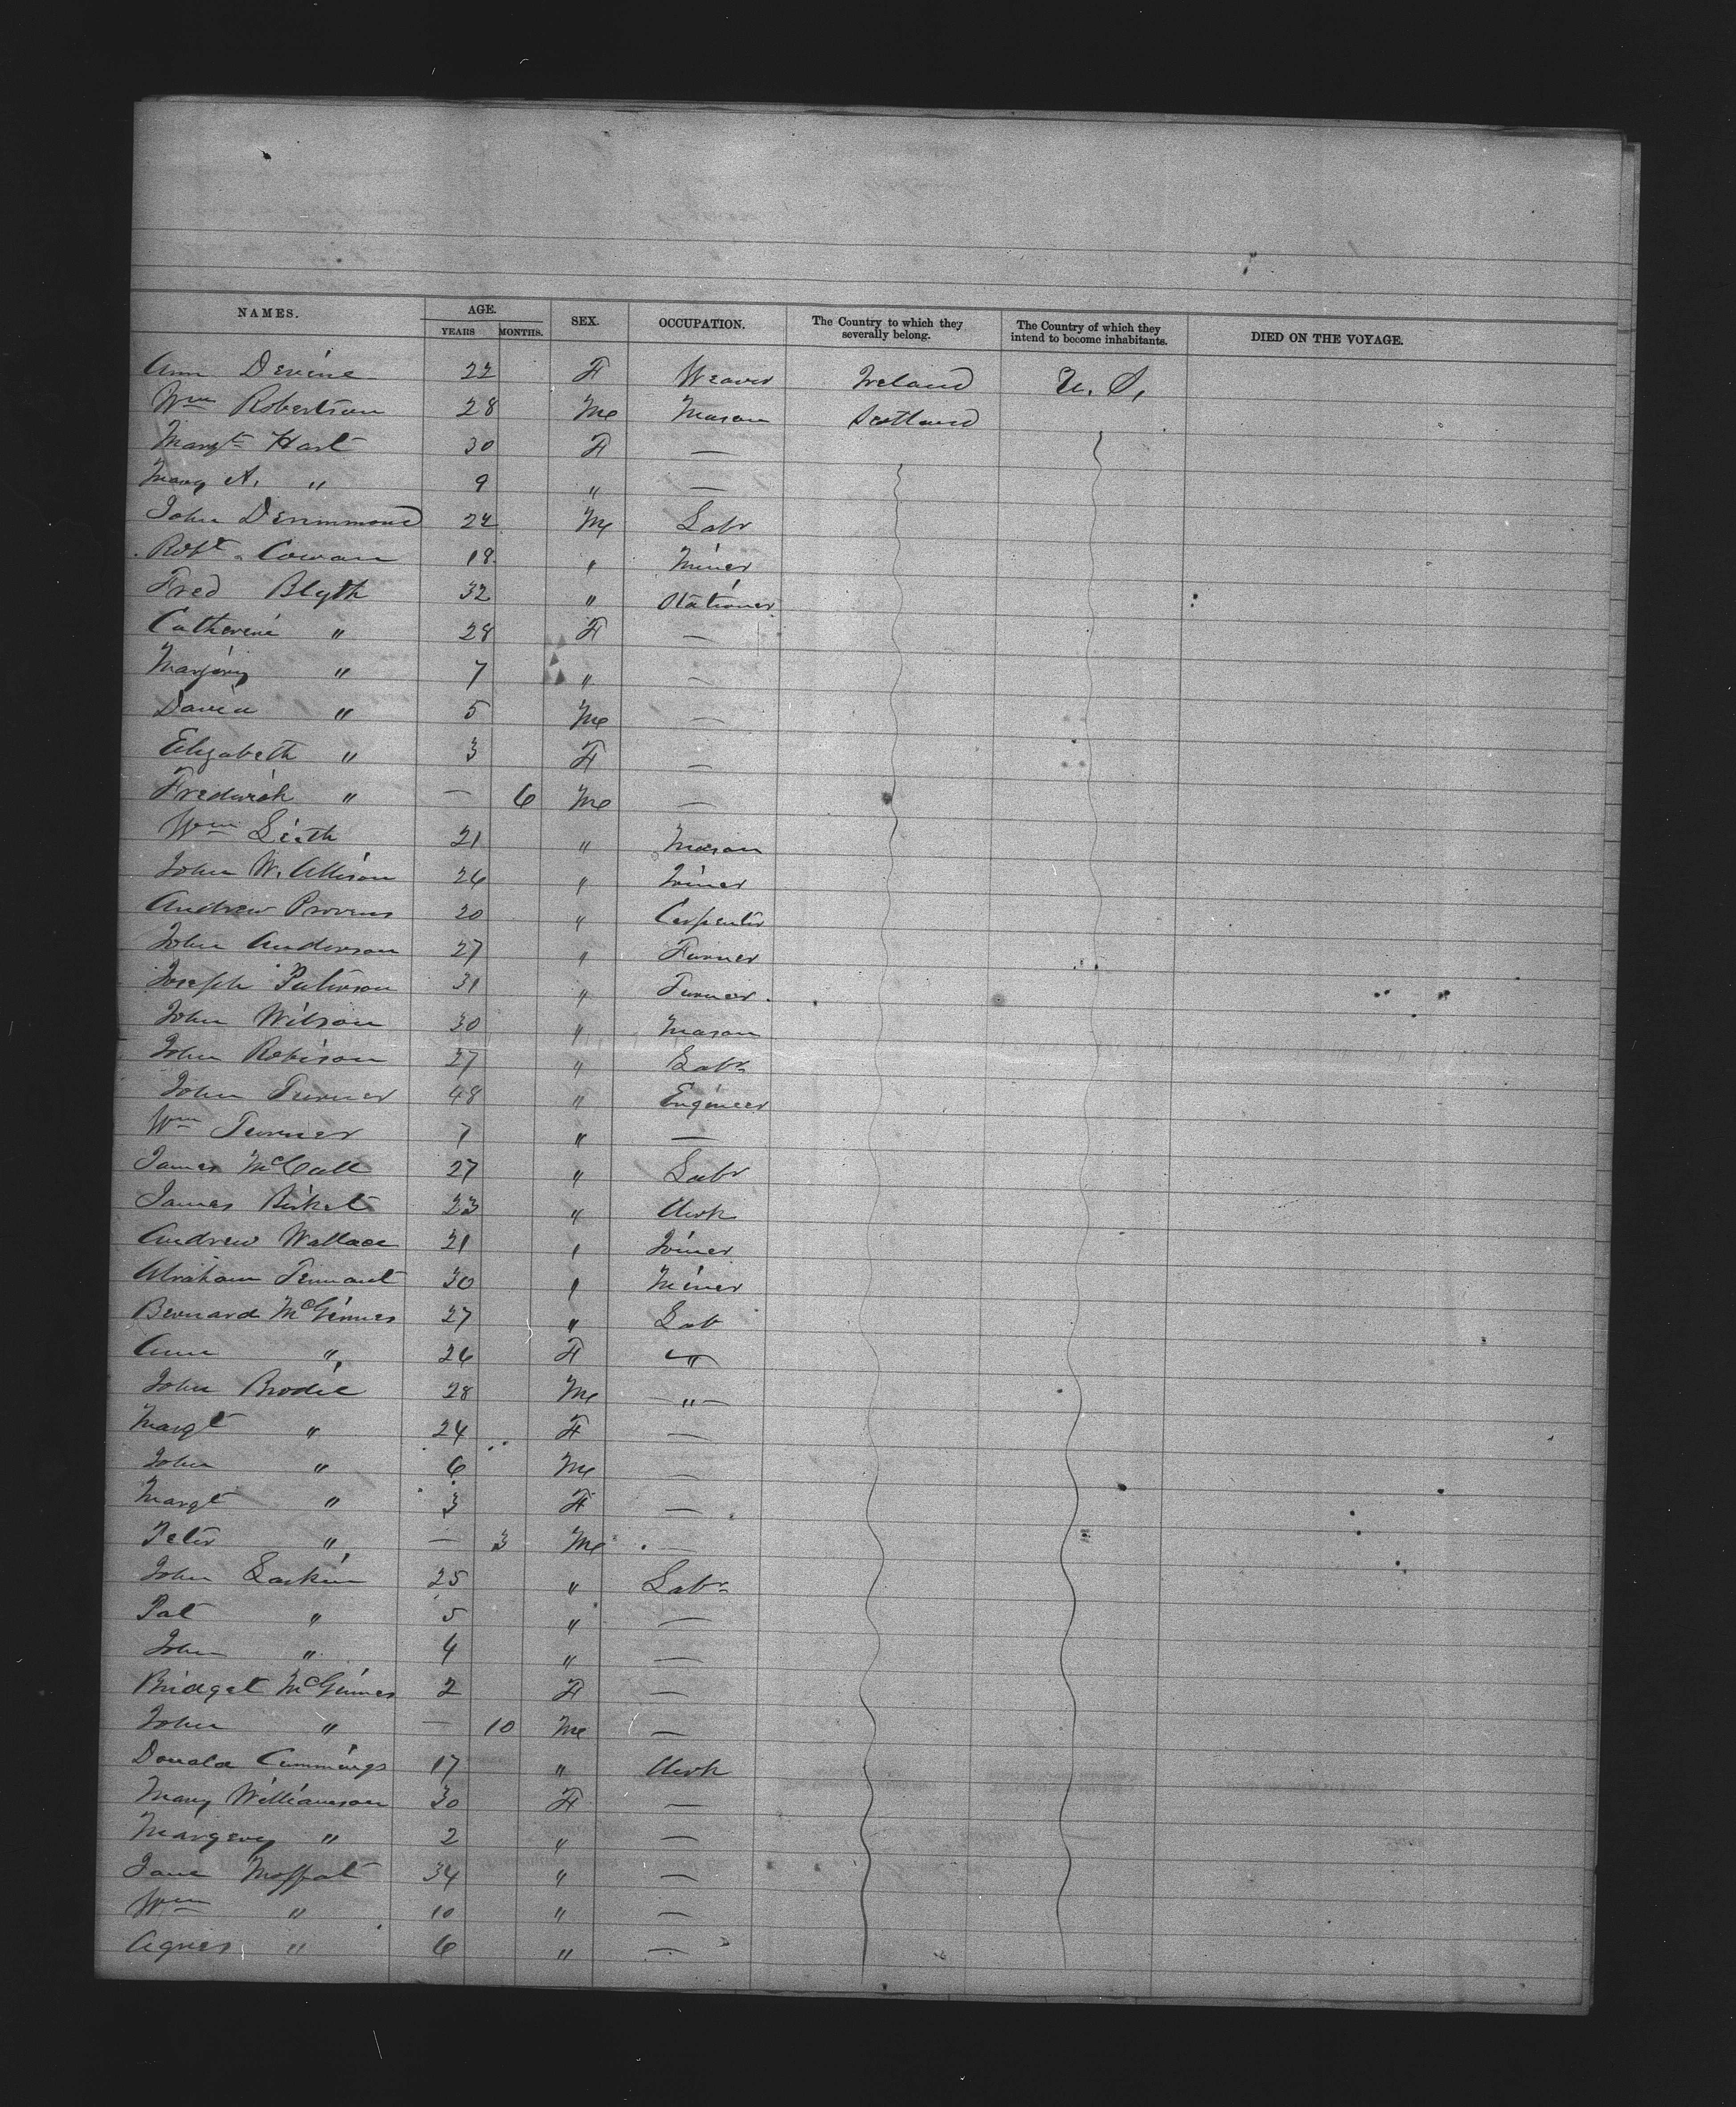 NAMES. AGE. YEARS MONTHS. SEX. OCCUPATION. The Country to which they severally belong. The Country of which they intend to become inhabitants. DIED ON THE VOYAGE.
Ann Devine 22 F Weaver Ireland U. S.
Wm Robertson 28 M Mason Scotland
Margt Hart 30 F —
Mary A. " 9 " —
John Drummond 24 M Labr
Robt Cowan 18 " Miner
Fred Blyth 32 " Stationer
Catherine " 28 F —
Marjory " 7 " —
David " 5 M —
Elizabeth " 3 F —
Frederick " — 6 M —
Wm Leith 21 " Mason
John W. Allison 26 " Joiner
Andrew Provens 20 " Carpenter
John Anderson 27 " Farmer
Joseph Paterson 31 "
John Wilson 30 " Mason
John Robison 27 " Labr
John Turner 48 " Engineer
Wm Turner 7 " —
James McCall 27 " Labr
James Birket 23 " Clerk
Andrew Wallace 21 " Joiner
Abraham Tennant 30 " Miner
Bernard McGinnes 27 " Lab
Ann " 26 F "
John Brodie 28 M "
Margt " 24 F —
John " 6 M —
Margt " 3 F —
Peter " — 3 M —
John Larkin 25 " Labr
Pat " 5 " —
John " 4 " —
Bridget McGinnes 2 F —
John " — 10 M —
Donald Cummings 17 " Clerk
Mary Williamson 30 F —
Margery " 2 " —
Jane Moffat 34 " —
Wm " 10 " —
Agnes " 6 " —